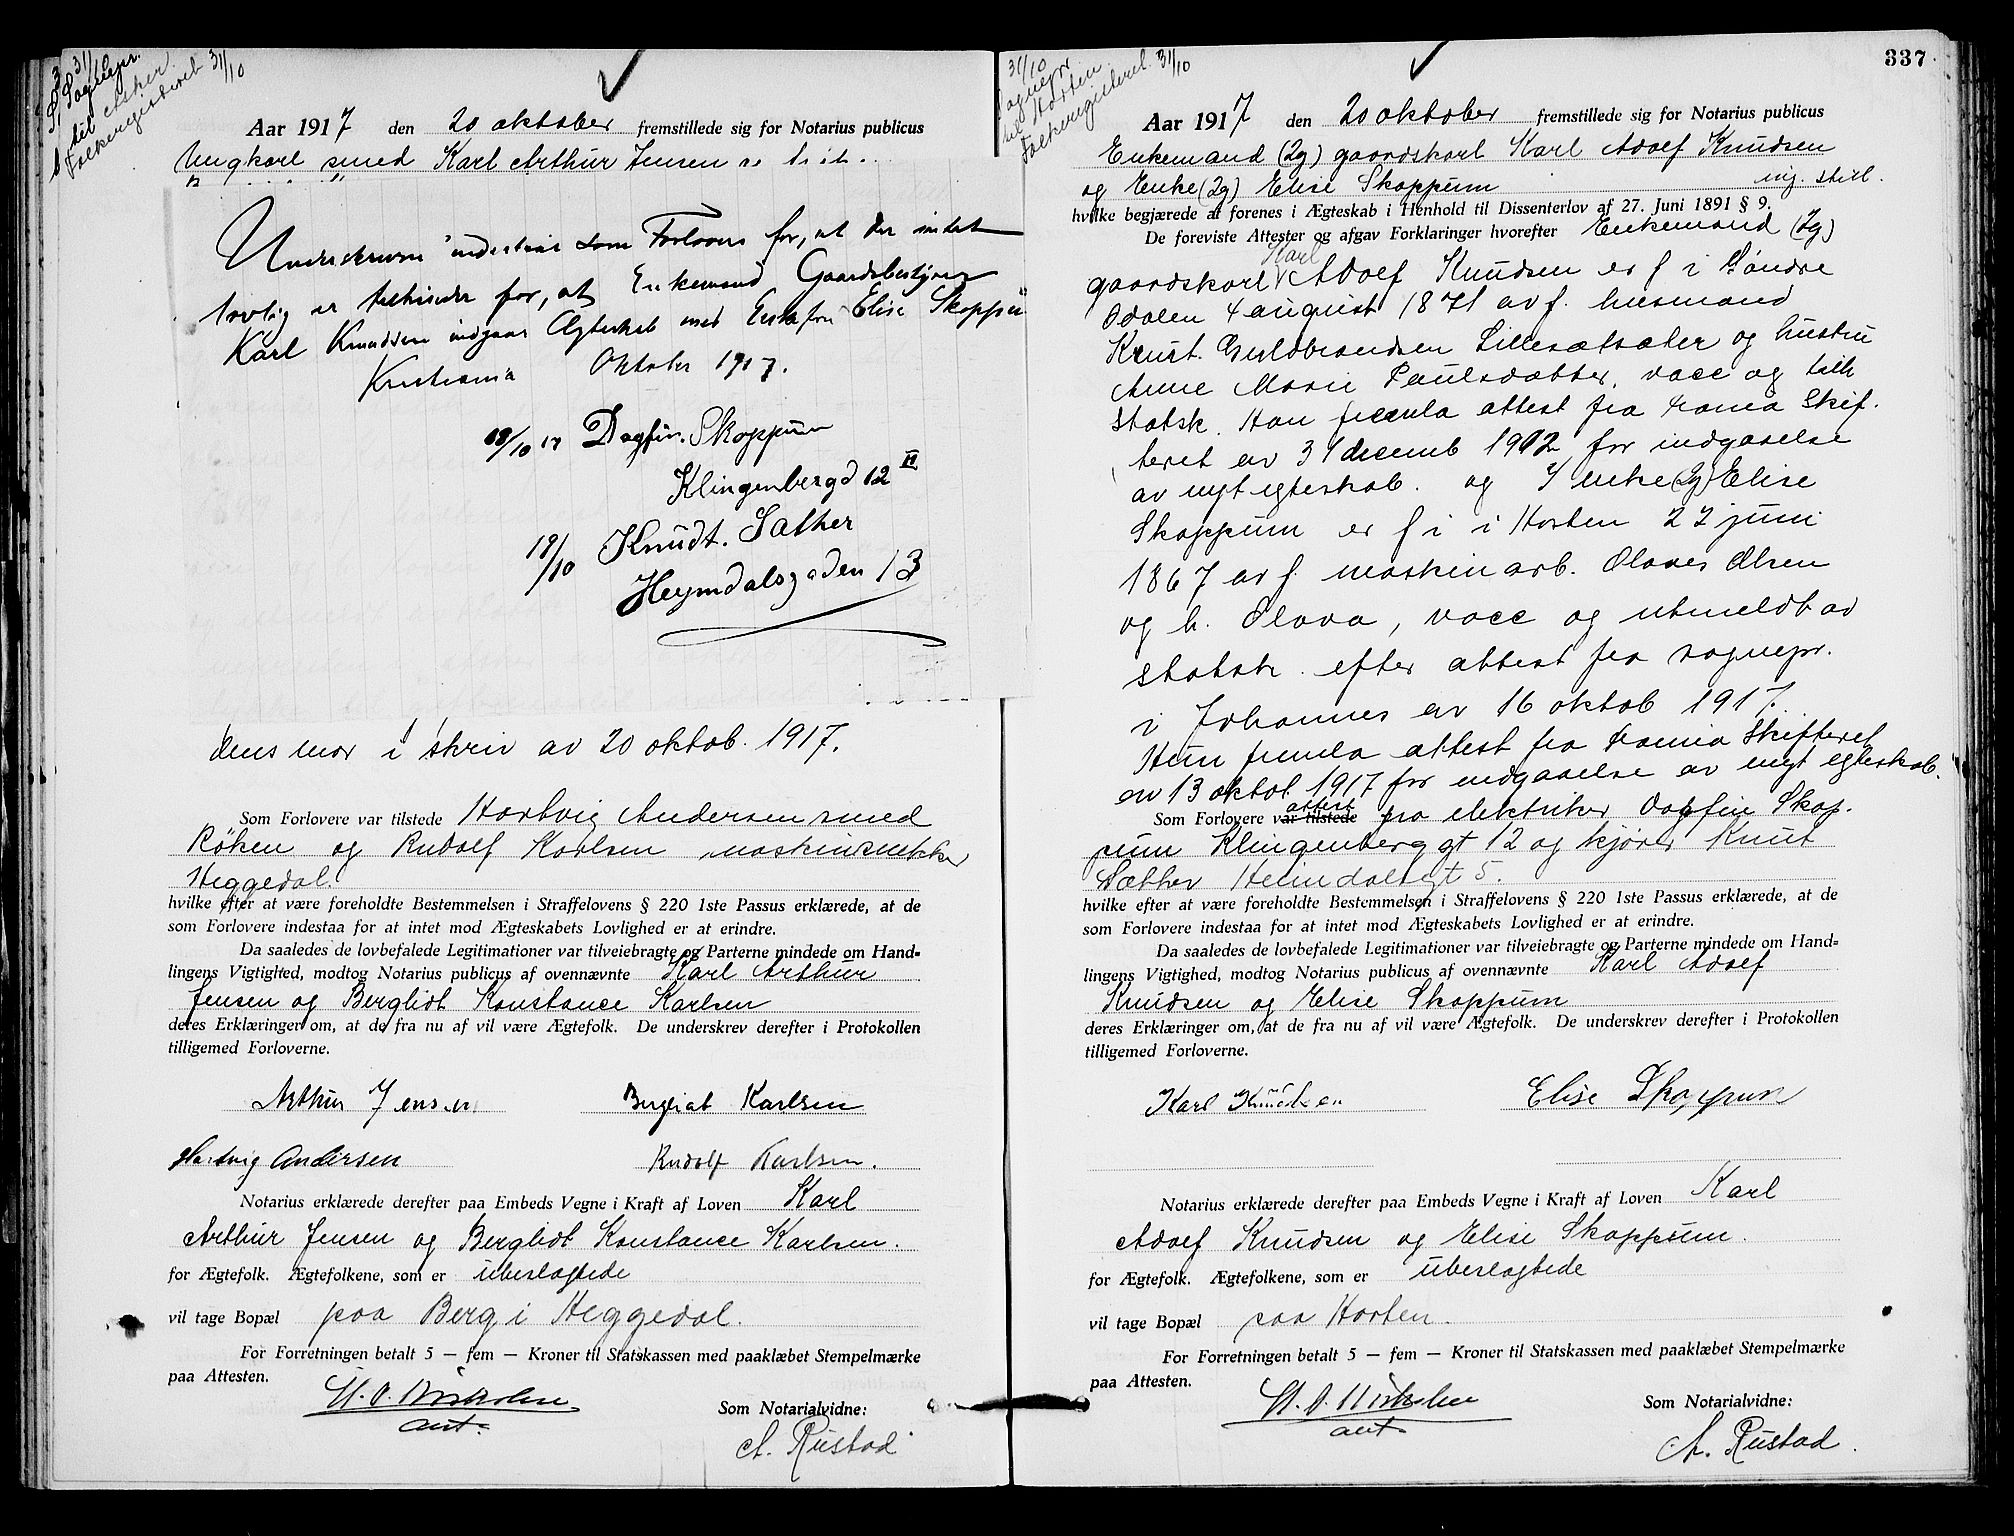 31/10
Sognepr.
til Asker
Folkeregisteret 31/10
Aar 1917 den 20 oktober fremstillede sig for Notarius publicus
Ungkarl smed Karl Arthur Jensen
Underskrevne indestaar som Forlovere for, at der intet
lovlig er tilhinder for, at Enkemand Gaardsbestyrer
Karl Knudsen indgaar Ægteskab med Enkefru Elise Skoppum
Kristiania Oktober 1917.
18/10 17 Dagfin. Skoppum
Klingenbergd 12 II
18/10 Knudt. Sather
Heymdalsgaden 13
dens mor i skriv av 20 oktob. 1917.
Som Forlovere var tilstede Hartvig Andersen smed
Röken og Rudolf Karlsen maskinsnekker
Heggedal.
hvilke efter at være foreholdte Bestemmelsen i Straffelovens § 220 1ste Passus erklærede, at de
som Forlovere indestaa for at intet mod Ægteskabets Lovlighed er at erindre.
Da saaledes de lovbefalede Legitimationer var tilveiebragte og Parterne mindede om Hand-
lingens Vigtighed, modtog Notarius publicus af ovennævnte Karl Arthur
Jensen og Bergliot Konstance Karlsen
deres Erklæringer om, at de fra nu af vil være Ægtefolk. De underskrev derefter i Protokollen
tilligemed Forloverne.
Arthur Jensen Bergliot Karlsen
Hartvig Andersen Rudolf Karlsen.
Notarius erklærede derefter paa Embeds Vegne i Kraft af Loven Karl
Arthur Jensen og Bergliot Konstance Karlsen.
for Ægtefolk. Ægtefolkene, som er ubeslægtede
vil tage Bopæl paa Berg i Heggedal.
For Forretningen betalt 5 — fem — Kroner til Statskassen med paaklæbet Stempelmærke
paa Attesten.
aut.
Som Notarialvidne:
A. Rustad
337
31/10
Sognepr.
til Horten
Folkeregisteret 31/10
Aar 1917 den 20 oktober fremstillede sig for Notarius publicus
Enkemand (2g) gaardskarl Karl Adolf Knudsen
og Enke (2g) Elise Skoppum
hvilke begjærede at forenes i Ægteskab i Henhold til Dissenterlov af 27. Juni 1891 § 9.
De foreviste Attester og afgav Forklaringer hvorefter Enkemand (2g)
gaardskarl Karl Adolf Knudsen er f i Söndre
Odalen 4 august 1871 av f. husmand
Knut. Guldbrandsen Lillesætsæter og hustru
Anne Marie Paulsdatter, vacc og tilh
statsk. Han freml attest fra Krania Skif.
teret av 31 decemb 1912 for indgaaelse
av nyt egteskab. og enke (2g) Elise
Skoppum er f i Horten 27 juni
1867 av f. maskinarb. Olaves Olsen
og h. Olava, vacc og utmeldt av
statsk. efter attest fra sognepr.
i Johannes av 16 oktob 1917.
Hun fremla attest fra Krania Skifteret
av 13 oktob. 1917 for indgaaelse av nyt egteskab.
Som Forlovere var tilstede attest fra elektriker Dagfin Skop.
pum Klingenberg gt 12 og kjører Knut
Sæther Heimdalsgt 5.
hvilke efter at være foreholdte Bestemmelsen i Straffelovens § 220 1ste Passus erklærede, at de
som Forlovere indestaa for at intet mod Ægteskabets Lovlighed er at erindre.
Da saaledes de lovbefalede Legitimationer var tilveiebragte og Parterne mindede om Hand-
lingens Vigtighed, modtog Notarius publicus af ovennævnte Karl Adolf
Knudsen og Elise Skoppum
deres Erklæringer om, at de fra nu af vil være Ægtefolk. De underskrev derefter i Protokollen
tilligemed Forloverne.
Karl Knudsen Elise Skoppum
Notarius erklærede derefter paa Embeds Vegne i Kraft af Loven Karl
Adolf Knudsen og Elise Skoppum.
for Ægtefolk. Ægtefolkene, som er ubeslægtede
vil tage Bopæl paa Horten.
For Forretningen betalt 5 — fem — Kroner til Statskassen med paaklæbet Stempelmærke
paa Attesten.
aut.
Som Notarialvidne:
A. Rustad.